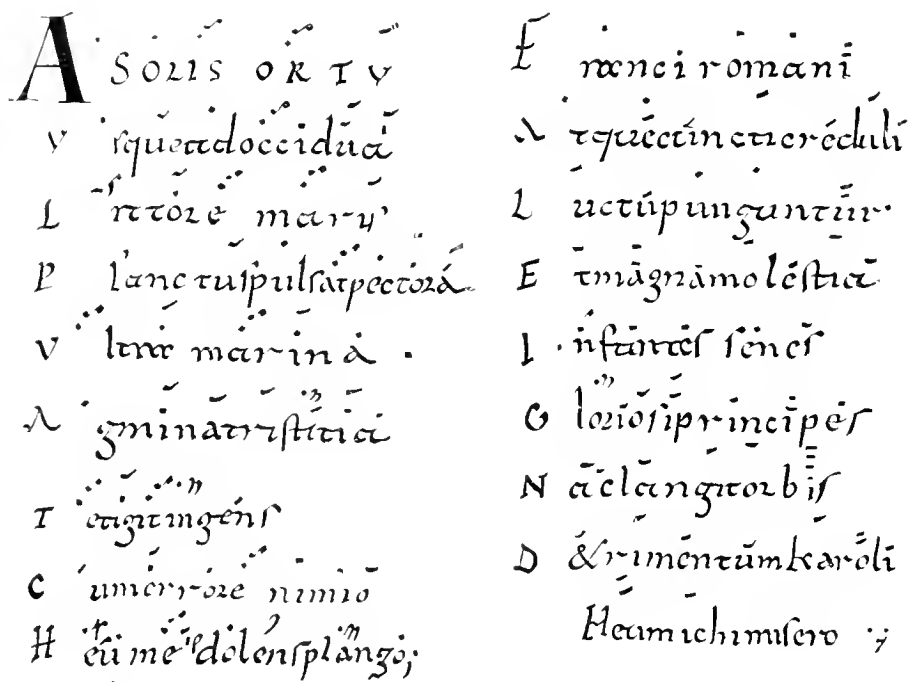 A SOLIS ORTV
V sque ad occidua
L ittore maris
P lanctus pulsat pectora
V ltra marina
A gmina tristitia
T etigit ingens
C um errore nimio
H eu me dolens plango;
F ranci romani
A tque cuncti creduli
L uctu punguntur.
E t magna molestia
I nfantes senes
G loriosi principes
N ā clangit orbis
D &rimentum karoli
Heu michi misero ·;